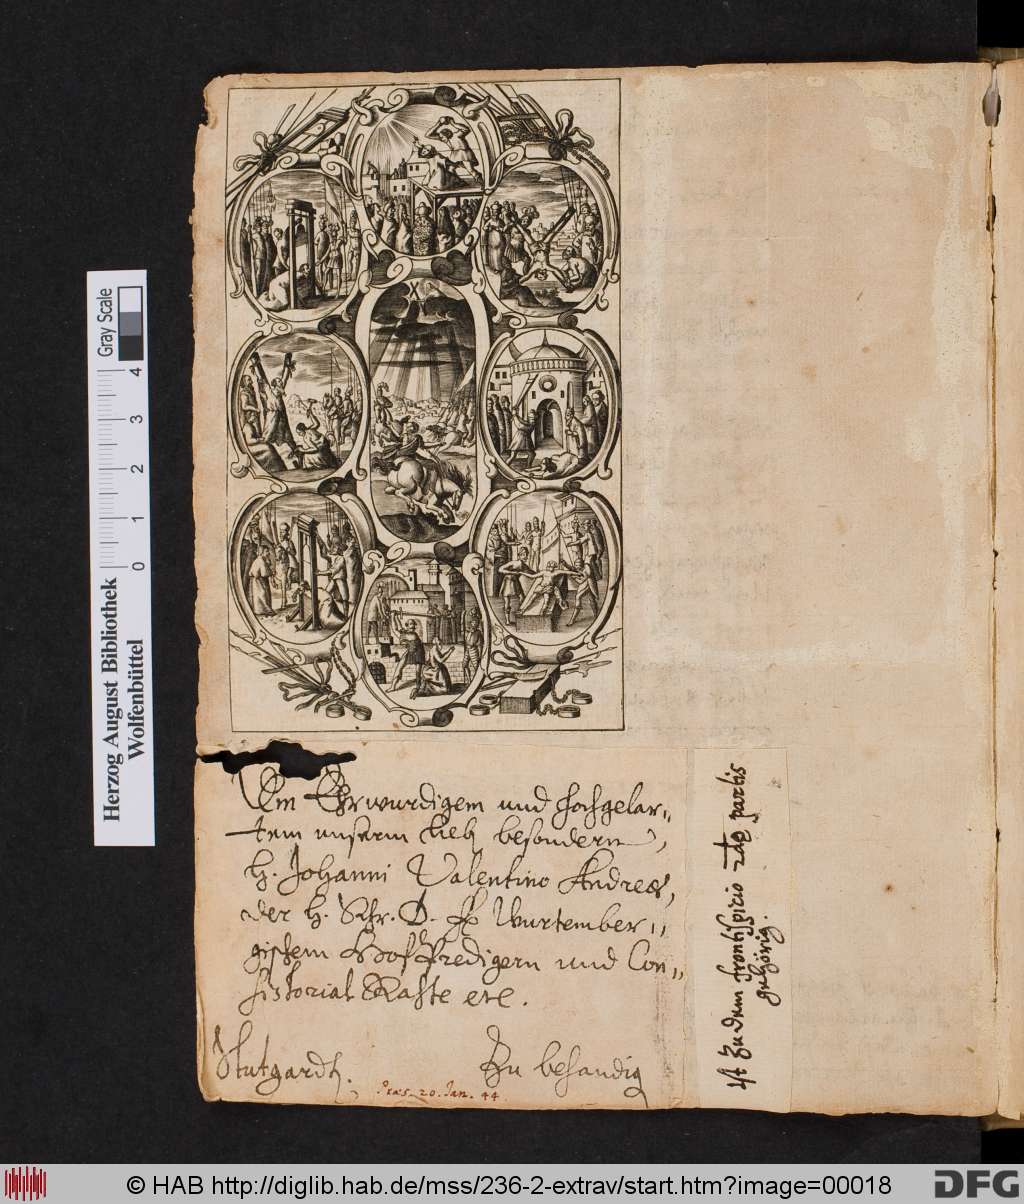 X
Dem Ehrwurdigem und hochgelar„
tem unserm lieb besondern,
H. Johanni Valentino Andreæ,
der H. Schr. D. fr Wurtember„
gischem HofPredigern und Con„
sistorial Rahte etc.
Stutgardt.
Zu behandig
Præs. 20. Jan. 44.
ist zu dem frontispicio partis
gehörig.
Gray Scale
4
3
2
1
0
Herzog August Bibliothek
Wolfenbüttel
© HAB http://diglib.hab.de/mss/236-2-extrav/start.htm?image=00018
DFG